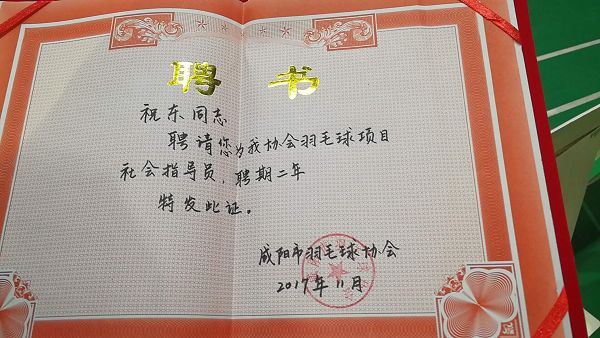 聘书
祝东同志
聘请您为我协会羽毛球项目
社会指导员，聘期二年
特发此证。
咸阳市羽毛球协会
2017年11月